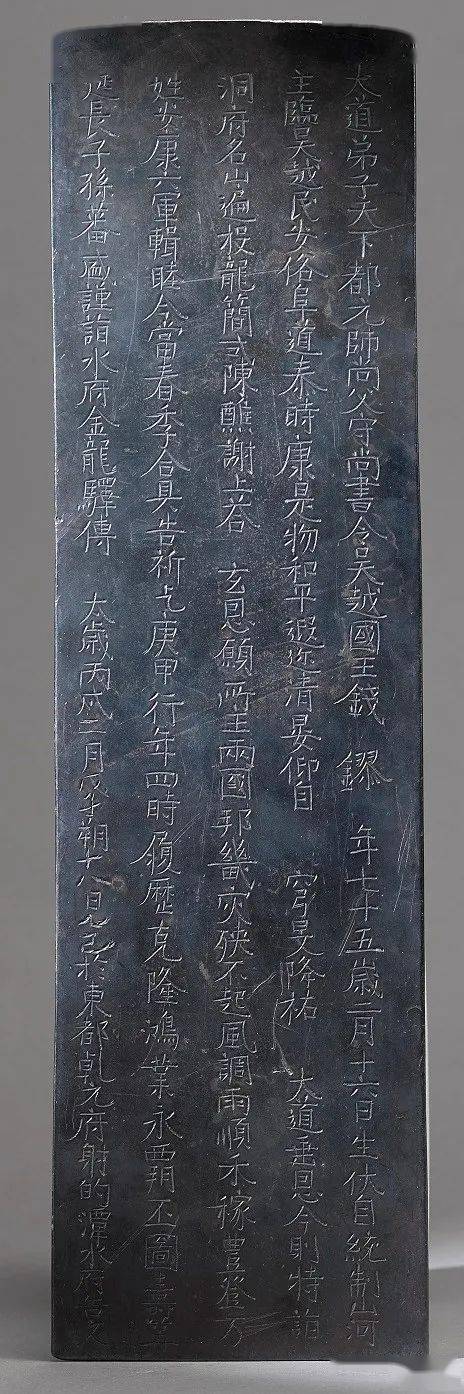 太道弟子天下都元帥尚父守尚書令吳越國王錢 鏐 年七十五歲二月十六日生伏自統制山河
主臨吳越民安俗阜道泰時康是物和平遐迩清晏仰自 穹旻降祐 太道垂恩今則特詣
洞府名山遍投龍簡式陳醮謝上荅 玄恩願所王兩國邦畿灾殃不起風調雨順禾稼豊登万
姓安康六軍輯睦今當春季合具告祈乞庚甲行年四時履歷克隆鴻業永霸丕圖壽筭
延長子孫蕃盛謹詣水府金龍驛傳 太歲丙戌三月戊子朔十八日乙巳於東都乾元府射的潭水府告文